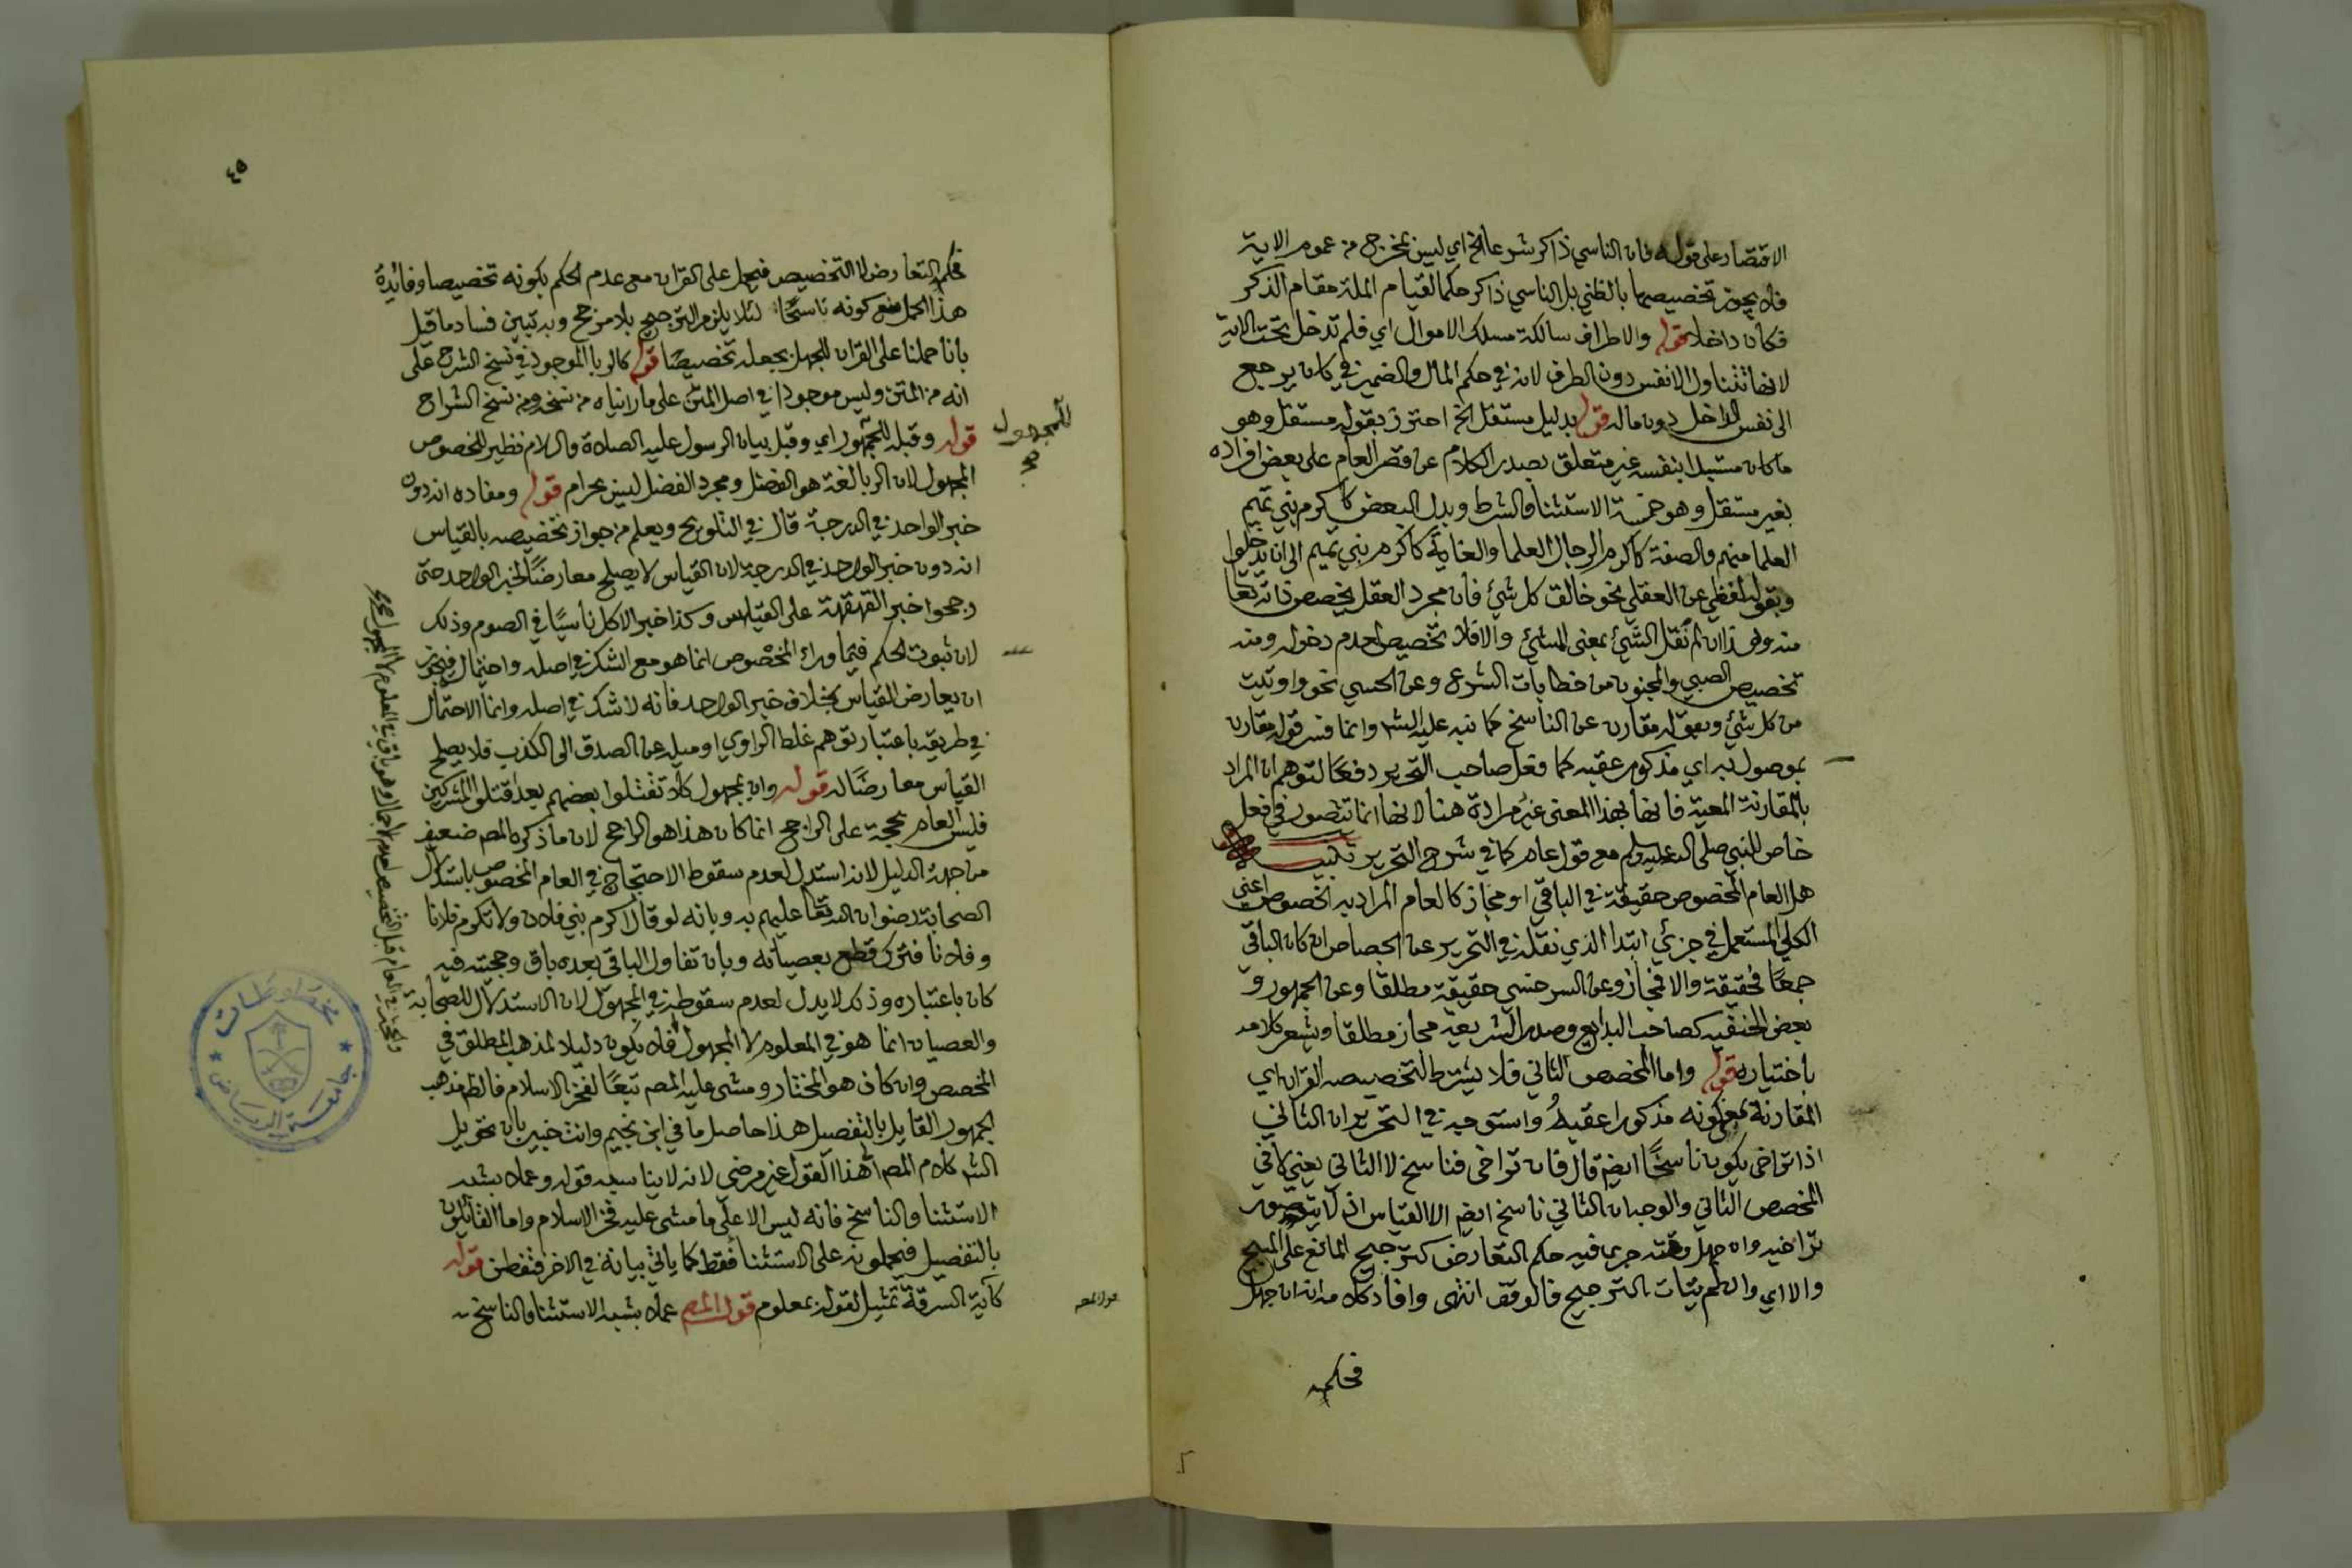 الاقتصار على قوله فان الناسي ذاكر شرعا الخ اي ليس بمخرج من عموم الاية
فلا يجوز تخصيصها بالظني بل الناسي ذاكر حكما لقيام الملة مقام الذكر
فكان داخلا قوله والاطراف سالكة مسلك الاموال اي فلم تدخل تحت الاية
لانها تتناول الانفس دون الطرف لانه في حكم المال والضمير في كان يرجع
الى نفس الداخل دون ماله قوله بدليل مستقل الخ احترز بقوله مستقل وهو
ما كان مستبدا بنفسه غير متعلق بصدر الكلام عن قصر العام على بعض افراده
بغير مستقل وهو خمسة الاستثنا والشرط وبدل البعض كاكرم بني تميم
العلما منهم والصفة كاكرم الرجال العلما والغاية كاكرم بني تميم الى ان يدخلوا
وبقوله لفظي عن العقلي نحو خالق كل شئ فان مجرد العقل يخصص ذاته تعا
منه وهذا ان لم نقل الشئ بمعنى المشئ والا فلا تخصيص لعدم دخوله ومنه
تخصيص الصبي والمجنون من خطابات الشرع وعن الحسي نحو واوتيت
من كل شئ وبقوله مقارن عن الناسخ كما نبه عليه الشه وانما فسر قوله مقارن
بموصول به اي مذكور عقبه كما فعل صاحب التحرير دفعا لتوهم ان المراد
بالمقارنة المعية فانها بهذا المعنى غير مرادة هنا لانها انما تتصور في فعل
خاص للنبي صلى الله عليه وسلم مع قول عام كما في شرح التحرير تنبيه
هل العام المخصوص حقيقة في الباقي او مجاز كالعام المراد به الخصوص اعني
الكلي المستعمل في جزئي ابتدا الذي نقله في التحرير عن الجصاص ان كان الباقي
جمعًا فحقيقة والا فمجاز وعن السرخسي حقيقة مطلقا وعن الجمهور و
بعض الحنفيه كصاحب البدايع وصدر الشريعة مجاز مطلقا ويشعر كلامه
باختياره قوله واما المخصص الثاني فلا يشترط لتخصيصه القران اي
المقارنة بمعنى كونه مذكورا عقيبه واستوجه في التحرير ان الثاني
اذا تراخى يكون ناسخًا ايضا قال فان تراخى فناسخ لا الثاني يعني لا في
المخصص الثاني والوجه ان الثاني ناسخ ايضا الا القياس اذ لا يتصور
تراخيه وان جهل وقته جرى فيه حكم التعارض كترجيح المانع على المبيح
والا اي وان لم يتات الترجيح فالوقف انتهى وافاد كلامه انه ان جهل
فحكمه
٤٥
فحكم التعارض لا التخصيص فيحمل على القران مع عدم الحكم بكونه تخصيصا وفائدة
هذا الحمل منع كونه ناسخًا لئلا يلزم الترجيح بلا مرجح وبه تبين فساد ما قيل
بانا حملنا على القران للجهل بجعله تخصيصًا قوله كالربا الموجود في نسخ الشرح على
انه من المتن وليس موجودا في اصل المتن على ما رايناه من نسخه ومن نسخ الشراح
قوله وقبله للجمهور اي وقبل بيان الرسول عليه الصلاة والسلام نظير للخصوص
المجهول لان الربا لغة هو الفضل ومجرد الفضل ليس بحرام قوله ومفاده انه دون
خبر الواحد في الدرجة قال في التلويح ويعلم من جواز تخصيصه بالقياس
انه دون خبر الواحد في الدرجة لان القياس لا يصلح معارضًا لخبر الواحد حتى
رجحوا خبر القهقهة على القياس وكذا خبر الاكل ناسيًا في الصوم وذلك
لان ثبوت الحكم فيما وراء المخصوص انما هو مع الشك في اصله واحتمال فيجوز
ان يعارضه القياس بخلاف خبر الواحد فانه لا شك في اصله وانما الاحتمال
في طريقه باعتبار توهم غلط الراوي او ميله عن الصدق الى الكذب فلا يصلح
القياس معارضًا له قوله وان بمجهول كلا تقتلوا بعضهم بعد اقتلوا المشركين
فليس العام بحجة على الراجح انما كان هذا هو الراجح لان ما ذكره المصه ضعيف
من جهة الدليل لانه استدل لعدم سقوط الاحتجاج في العام المخصوص باستدلال
الصحابة رضوان الله تعا عليهم به وبانه لو قال اكرم بني فلان ولا تكرم فلانا
وفلانا فترك قطع بعصيانه وبان تناول الباقي بعده باق وحجيته فيه
كان باعتباره وذلك لا يدل لعدم سقوطه في المجهول لان الاستدلال للصحابة
والعصيان انما هو في المعلوم لا المجهول فلا يكون دليلا لمذهب المطلق في
المخصص وان كان هو المختار ومشى عليه المصه تبعًا لفخر الاسلام فالظه مذهب
الجمهور القايل بالتفصيل هذا حاصل ما في ابن نجيم وانت خبير بان تحويل
الشه كلام المصه الى هذا القول غير مرضي لانه لا يناسبه قوله وعملا بشبه
الاستثنا والناسخ فانه ليس الا على ما مشى عليه فخر الاسلام واما القائلون
بالتفصيل فيعملونه على الاستثنا فقط كما ياتي بيانه في الاخر فتفطن قوله
كآية السرقة تمثيل لقوله بمعلوم قول المصه عملا بشبه الاستثنا والناسخ
للمجهول
صح
قول المصه
مخطوطات
جامعة الرياض